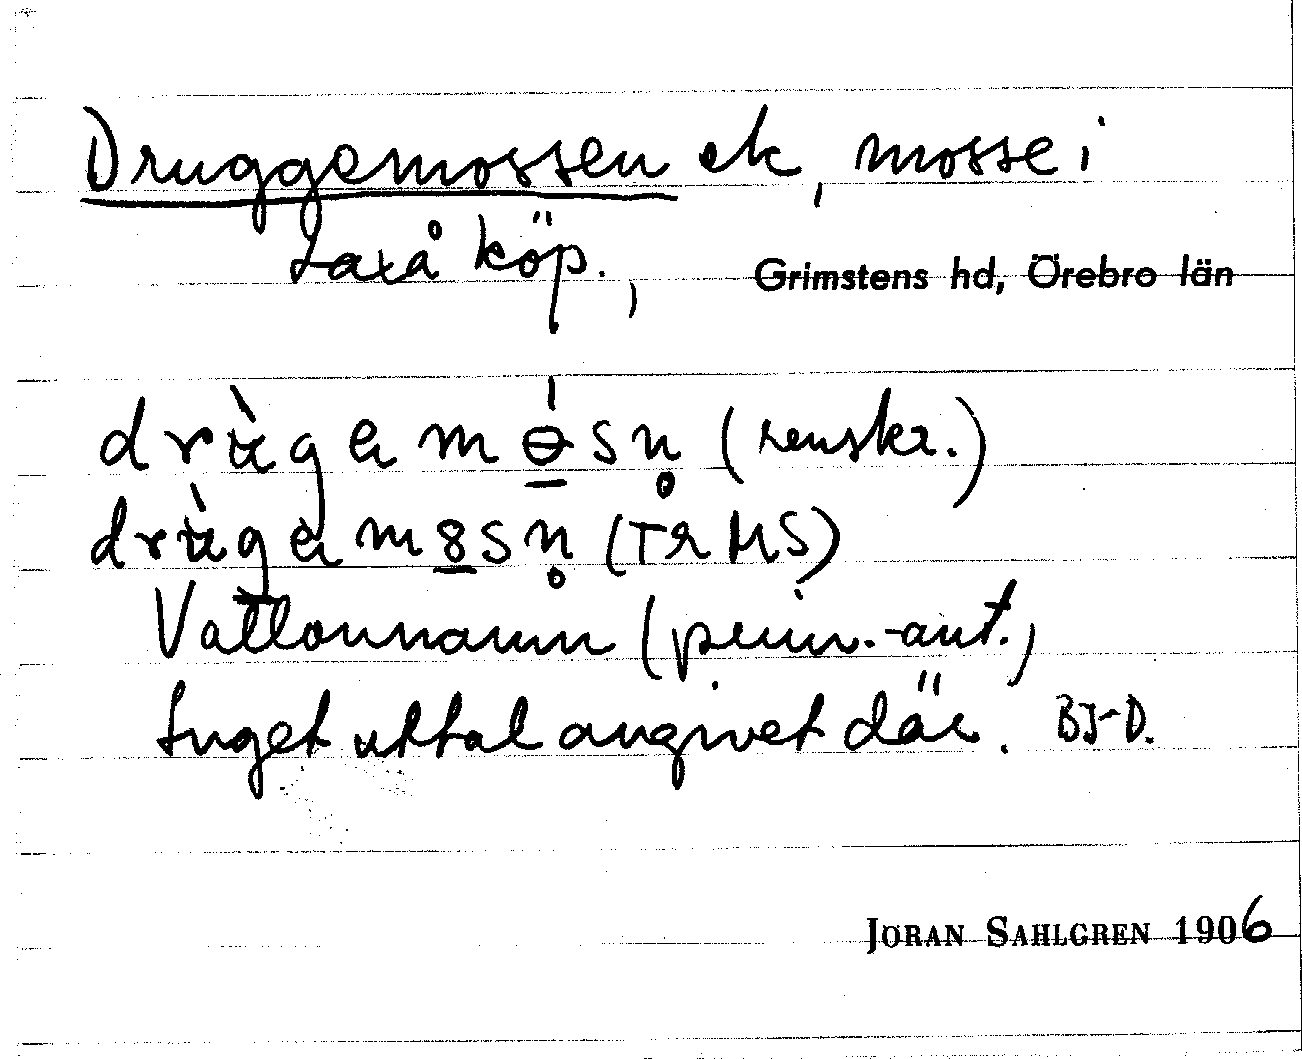 Druggemossen ek, mosse i
Laxå köp.,
Grimstens hd, Örebro län
(renskr.)
(TR MS)
Vallonnamn (prim.-ant.)
Inget uttal angivet där. BJ-D.
JÖRAN SAHLGREN 1906